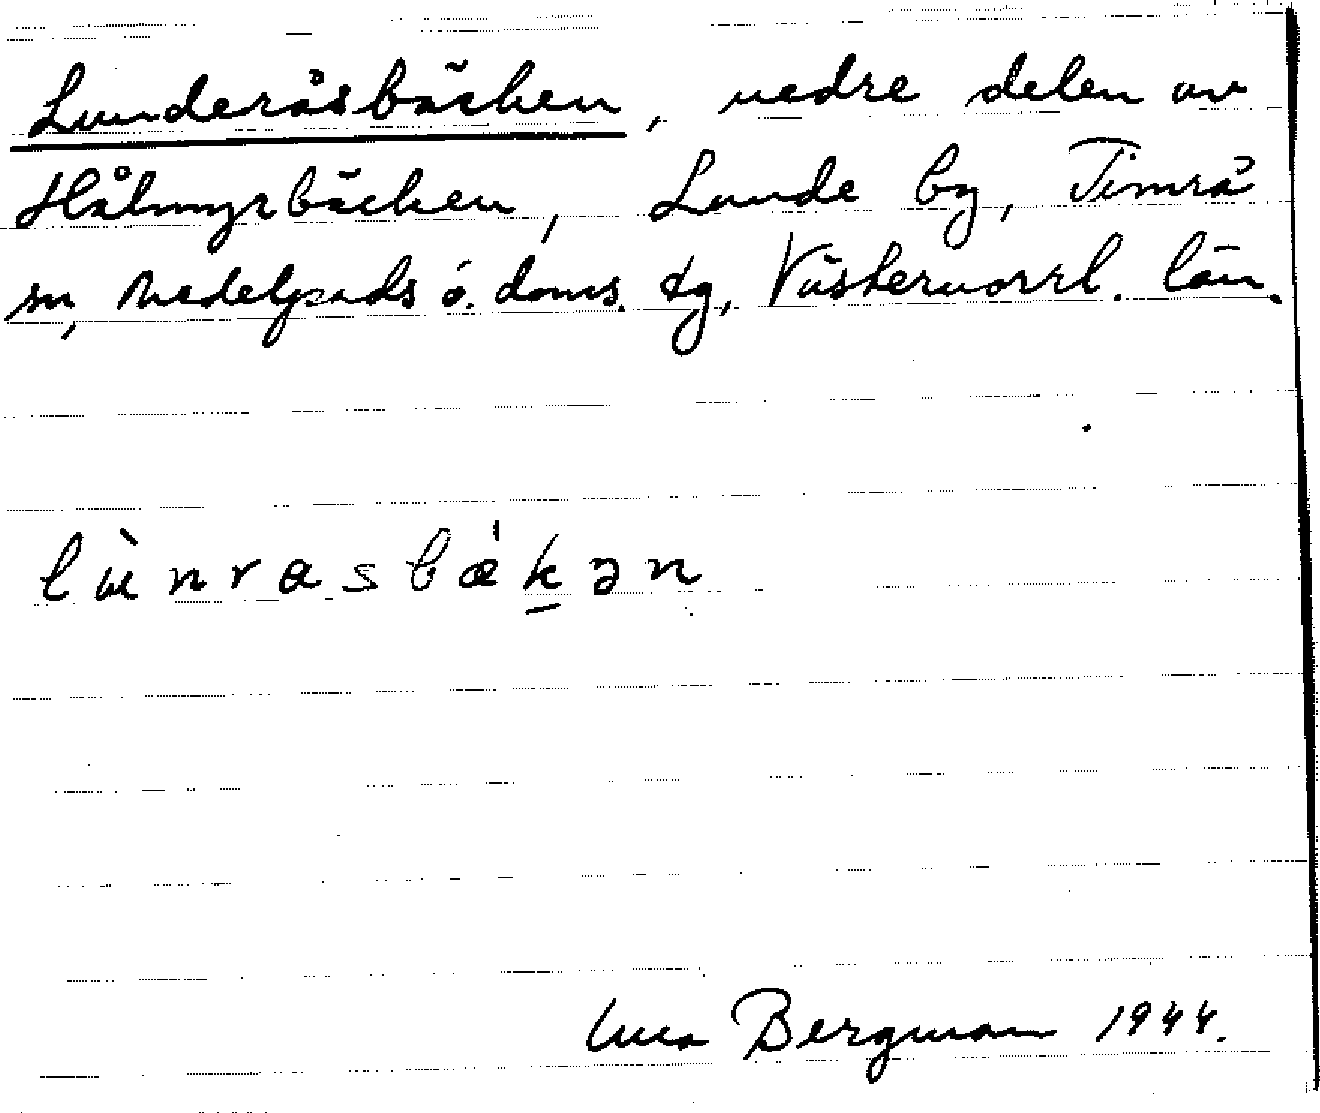 Lunderåsbäcken, nedre delen av
Hålmyrbäcken, Lunde by, Timrå
sn, Medelpads ö. doms. tg, Västernorrl. län.
lùnrasbǽkən
Una Bergman 1944.